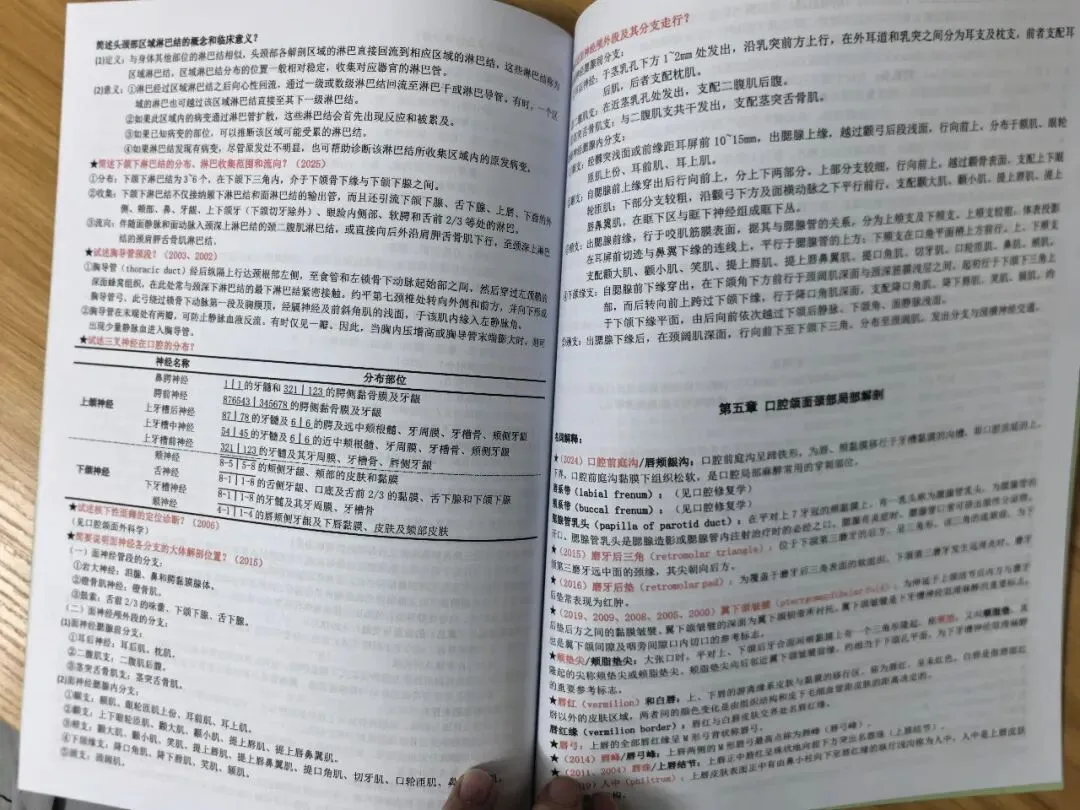 简述头颈部区域淋巴结的概念和临床意义？
(1)定义：与身体其他部位的淋巴结相似，头颈部各解剖区域的淋巴直接回流到相应区域的淋巴结，这些淋巴结称为
区域淋巴结，区域淋巴结分布的位置一般相对稳定，收集对应器官的淋巴管。
(2)意义：①淋巴经过区域淋巴结之后向心性回流，通过一级或数级淋巴结回流至淋巴干或淋巴导管。有时，一个区
域的淋巴也可越过该区域淋巴结直接至其下一级淋巴结。
②如果此区域内的病变通过淋巴管扩散，这些淋巴结会首先出现反应和被累及。
③如果已知病变的部位，可以推断该区域可能受累的淋巴结。
④如果淋巴结发现有病变，尽管原发灶不明显，也可帮助诊断该淋巴结所收集区域内的原发病变。
★简述下颌下淋巴结的分布、淋巴收集范围和流向？（2025）
①分布：下颌下淋巴结为3~6个，在下颌下三角内，介于下颌骨下缘与下颌下腺之间。
②收集：下颌下淋巴结不仅接纳颏下淋巴结和面淋巴结的输出管，而且还引流下颌下腺、舌下腺、上唇、下唇的外
侧、颊部、鼻、牙龈、上下颌牙(下颌切牙除外)、眼睑内侧部、软腭和舌前2/3等处的淋巴。
③流向：伴随面静脉和面动脉入颈深上淋巴结的颈二腹肌淋巴结，或直接向后外沿肩胛舌骨肌下行，至颈深上淋巴
结的颈肩胛舌骨肌淋巴结。
★试述胸导管颈段？（2003、2002）
①胸导管（thoracic duct）经后纵隔上行达颈根部左侧，至食管和左锁骨下动脉起始部之间，然后穿过左颈鞘的
深面蜂窝组织，在此处常与颈深下淋巴结的最下淋巴结紧密接触。约平第七颈椎处转向外侧和前方，并向下形成
胸导管弓，此弓绕过锁骨下动脉第一段及胸膜顶，经膈神经及前斜角肌的浅面，于该肌内缘入左静脉角。
②胸导管在末端处有两瓣，可防止静脉血液反流；有时仅见一瓣。因此，当胸内压增高或胸导管末端膨大时，则可
出现少量静脉血进入胸导管。
★试述三叉神经在口腔的分布？
神经名称 分布部位
上颌神经
鼻腭神经 1|1的牙髓和321|123的腭侧黏骨膜及牙龈
腭前神经 876543|345678的腭侧黏骨膜及牙龈
上牙槽后神经 87|78的牙髓及6|6的腭及远中颊根髓、牙周膜、牙槽骨、颊侧牙龈
上牙槽中神经 54|45的牙髓及6|6的近中颊根髓、牙周膜、牙槽骨、颊侧牙龈
上牙槽前神经 321|123的牙髓及其牙周膜、牙槽骨、唇侧牙龈
下颌神经
颊神经 8-5|5-8的颊侧牙龈、颊部的皮肤和黏膜
舌神经 8-1|1-8的舌侧牙龈、口底及舌前2/3的黏膜、舌下腺和下颌下腺
下牙槽神经 8-1|1-8的牙髓及其牙周膜、牙槽骨
颏神经 4-1|1-4的唇颊侧牙龈及下唇黏膜、皮肤及颏部皮肤
★试述核下性面瘫的定位诊断？（2006）
（见口腔颌面外科学）
★简要说明面神经各分支的大体解剖位置？（2015）
（一）面神经管段的分支：
①岩大神经：泪腺、鼻和腭黏膜腺体。
②镫骨肌神经：镫骨肌。
③鼓索：舌前2/3的味蕾、下颌下腺、舌下腺。
（二）面神经颅外段的分支：
(1)面神经腮腺前分支：
①耳后神经：耳后肌、枕肌。
②二腹肌支：二腹肌后腹。
③茎突舌骨肌支：茎突舌骨肌。
(2)面神经腮腺内分支：
①颞支：额肌、眼轮匝肌上份、耳前肌、耳上肌。
②颧支：上下眼轮匝肌、颧大肌、颧小肌、提上唇肌、提上唇鼻翼肌。
③颊支：颧大肌、颧小肌、笑肌、提上唇肌、提上唇鼻翼肌、提口角肌、切牙肌、口轮匝肌、鼻肌
④下颌缘支：降口角肌、降下唇肌、笑肌、颏肌。
⑤颈支：颈阔肌。
面神经颅外段及其分支走行？
神经腮腺前分支：
后神经：于茎乳孔下方1~2mm处发出，沿乳突前方上行，在外耳道和乳突之间分为耳支及枕支，前者支配耳
后肌，后者支配枕肌。
腹肌支：在近茎乳孔处发出，支配二腹肌后腹。
突舌骨肌支：与二腹肌支共干发出，支配茎突舌骨肌。
神经腮腺内分支：
支：经髁突浅面或前缘距耳屏前10~15mm，出腮腺上缘，越过颧弓后段浅面，行向前上，分布于额肌、眼轮
匝肌上份、耳前肌、耳上肌。
支：自腮腺前上缘穿出后行向前上，分上下两部分，上部分支较细，行向前上，越过颧骨表面，支配上下眼
轮匝肌；下部分支较粗，沿颧弓下方及面横动脉之下平行前行，支配颧大肌、颧小肌、提上唇肌、提上
唇鼻翼肌。在眶下区与眶下神经组成眶下丛。
颊支：出腮腺前缘，行于咬肌筋膜表面，据其与腮腺管的关系，分为上颊支及下颊支。上颊支较粗，体表投影
在耳屏前切迹与鼻翼下缘的连线上，平行于腮腺管的上方；下颊支在口角平面稍上方前行。上、下颊支
支配颧大肌、颧小肌、笑肌、提上唇肌、提上唇鼻翼肌、提口角肌、切牙肌、口轮匝肌、鼻肌、颊肌。
④下颌缘支：自腮腺前下缘穿出，在下颌角下方前行于颈阔肌深面与颈深筋膜浅层之间，起初行于下颌下三角上
部，而后转向前上跨过下颌下缘，行于降口角肌深面，支配降口角肌、降下唇肌、笑肌、颏肌。
于下颌下缘平面，由后向前依次越过下颌后静脉、下颌角、面静脉浅面。
⑤颈支：出腮腺下缘后，在颈阔肌深面，行向前下至下颌下三角，分布至颈阔肌。发出分支与颈横神经交通。
第五章 口腔颌面颈部局部解剖
名词解释：
★(2024) 口腔前庭沟/唇颊龈沟：口腔前庭沟呈蹄铁形，为唇、颊黏膜移行于牙槽黏膜的沟槽，即口腔前庭的上、
下界，口腔前庭沟黏膜下组织松软，是口腔局部麻醉常用的穿刺部位。
唇系带（labial frenum）：（见口腔修复学）
颊系带（buccal frenum）：（见口腔修复学）
腮腺管乳头（papilla of parotid duct）：在平对上7牙冠的颊黏膜上，有一乳头称为腮腺管乳头，为腮腺管的
开口。腮腺管乳头是腮腺造影或腮腺管内注射治疗时的必经之口。
★(2015) 磨牙后三角（retromolar triangle）：位于下颌第三磨牙的后方，呈三角形，该三角的底朝前，为下
颌第三磨牙远中面的颈缘，其尖朝向后方。
★(2016) 磨牙后垫（retromolar pad）：为覆盖于磨牙后三角表面的软组织，下颌第三磨牙发生冠周炎时，磨牙
后垫常表现为红肿。
★(2019、2009、2008、2005、2000) 翼下颌皱襞（pterygomandibular fold）：为伸延于上颌结节后内方与磨牙
后垫后方之间的黏膜皱襞，翼下颌皱襞的深面为翼下颌韧带所衬托。翼下颌皱襞是下牙槽神经阻滞麻醉的重要标志，
也是翼下颌间隙及咽旁间隙口内切口的参考标志。
★颊垫尖/颊脂垫尖：大张口时，平对上、下颌后牙合面间颊黏膜上有一个三角形隆起，称颊垫，
隆起的尖称颊垫尖或颊脂垫尖。颊脂垫尖向后邻近翼下颌皱襞前缘，约相当于下颌孔平面，为下牙槽神经阻滞麻醉
的重要参考标志。
★唇红（vermilion）和白唇：上、下唇的游离缘系皮肤与黏膜的移行区，称为唇红，呈朱红色。白唇是指唇部红
唇以外的皮肤区域，两者间的颜色变化是由组织结构和皮下毛细血管距皮肤的距离决定的。
唇红缘（vermilion border）：唇红与白唇皮肤交界处名唇红缘。
★唇弓：上唇的全部唇红缘呈M形弓背状称唇弓。
★(2014) 唇峰/唇弓峰：上唇两侧的M形唇弓最高点称为唇峰（唇弓峰）。
★(2011、2004) 唇珠/上唇结节：上唇正中唇红呈珠状地向前下方突出名唇珠（上唇结节）。
人中（philtrum）：上唇皮肤表面正中有由鼻小柱向下至唇红缘的纵行浅沟称为人中，人中是上唇皮肤